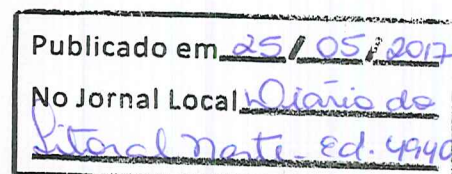 Publicado em 25/05/2017
No Jornal Local Diário do
Litoral Norte - Ed. 4940